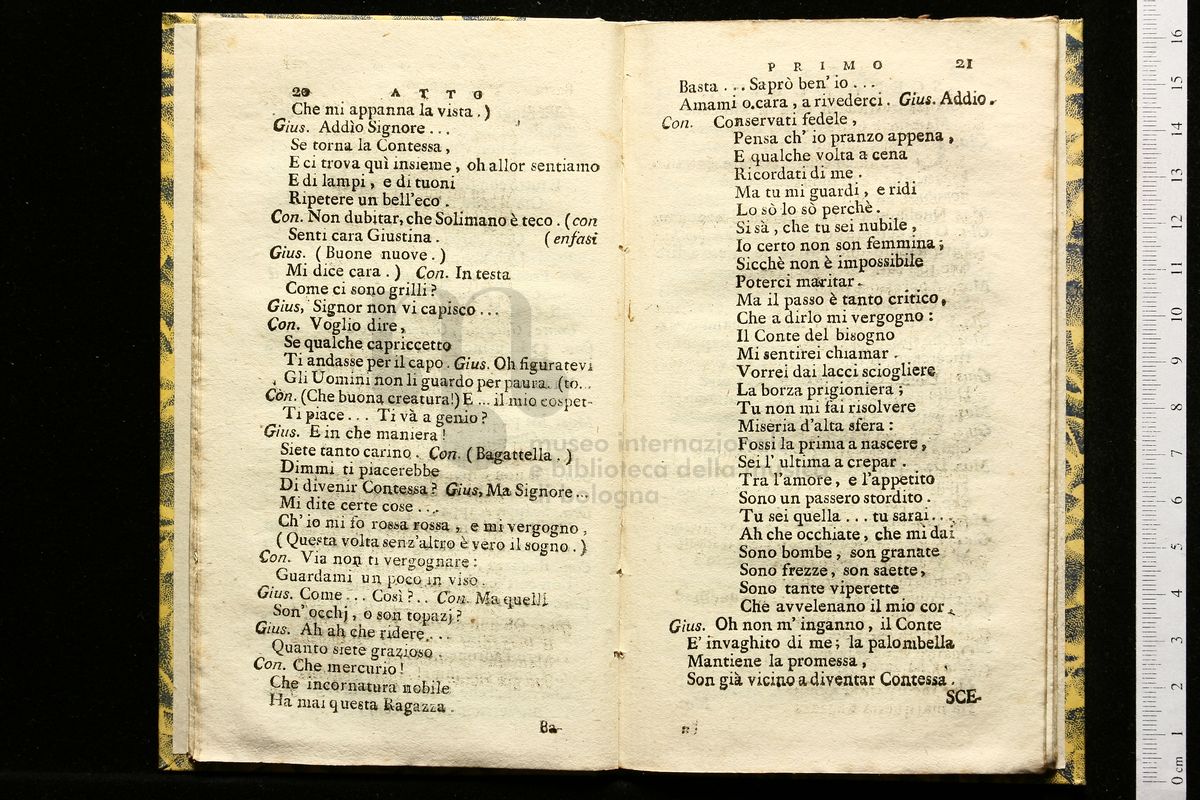 20 ATTO
Che mi appanna la vista.)
Gius. Addìo Signore...
Se torna la Contessa,
E ci trova quì insieme, oh allor sentiamo
E di lampi, e di tuoni
Ripetere un bell'eco.
Con. Non dubitar, che Solimano è teco. (con
Senti cara Giustina. (enfasi
Gius. (Buone nuove.)
Mi dice cara.) Con. In testa
Come ci sono grilli?
Gius, Signor non vi capisco...
Con. Voglio dire,
Se qualche capriccetto
Ti andasse per il capo. Gius. Oh figuratevi
Gli Uomini non li guardo per paura. (to...
Con. (Che buona creatura!) E ... il mio cospet-
Ti piace... Ti và a genio?
Gius. E in che maniera!
Siete tanto carino. Con. (Bagattella.)
Dimmi ti piacerebbe
Di divenir Contessa? Gius, Ma Signore...
Mi dite certe cose...
Ch' io mi fo rossa rossa, e mi vergogno,
(Questa volta senz'altro è vero il sogno.)
Con. Via non ti vergognare:
Guardami un poco in viso.
Gius. Come... Così?.. Con. Ma quelli
Son' occhj, o son topazj?
Gius. Ah ah che ridere...
Quanto siete grazioso.
Con. Che mercurio!
Che incornatura nobile
Ha mai questa Ragazza.
Ba-
PRIMO 21
Basta... Saprò ben' io...
Amami o.cara, a rivederci. Gius. Addio.
Con. Conservati fedele,
Pensa ch' io pranzo appena,
E qualche volta a cena
Ricordati di me.
Ma tu mi guardi, e ridi
Lo sò lo sò perchè.
Si sà, che tu sei nubile,
Io certo non son femmina;
Sicchè non è impossibile
Poterci maritar.
Ma il passo è tanto critico,
Che a dirlo mi vergogno:
Il Conte del bisogno
Mi sentirei chiamar.
Vorrei dai lacci sciogliere
La borza prigioniera;
Tu non mi fai risolvere
Miseria d'alta sfera:
Fossi la prima a nascere,
Sei l' ultima a crepar.
Tra l'amore, e l'appetito
Sono un passero stordito.
Tu sei quella... tu sarai...
Ah che occhiate, che mi dai
Sono bombe, son granate
Sono frezze, son saette,
Sono tante viperette
Che avvelenano il mio cor.
Gius. Oh non m' inganno, il Conte
E' invaghito di me; la palombella
Mantiene la promessa,
Son già vicino a diventar Contessa.
SCE-
museo internazio
e biblioteca della musica
di bologna
0 cm 1 2 3 4 5 6 7 8 9 10 11 12 13 14 15 16